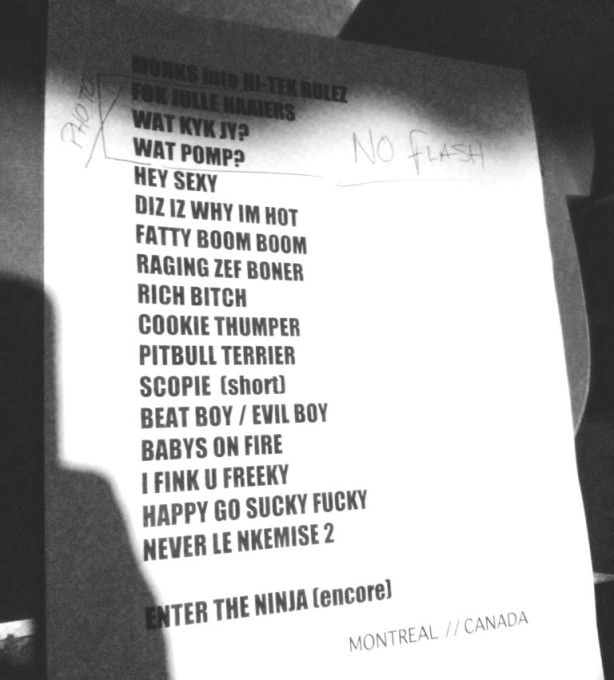 MONKS into HI-TEK RULEZ
FOK JULLE NAAIERS
WAT KYK JY?
WAT POMP?
PHOTO
NO FLASH
HEY SEXY
DIZ IZ WHY IM HOT
FATTY BOOM BOOM
RAGING ZEF BONER
RICH BITCH
COOKIE THUMPER
PITBULL TERRIER
SCOPIE (short)
BEAT BOY / EVIL BOY
BABYS ON FIRE
I FINK U FREEKY
HAPPY GO SUCKY FUCKY
NEVER LE NKEMISE 2
ENTER THE NINJA (encore)
MONTREAL // CANADA